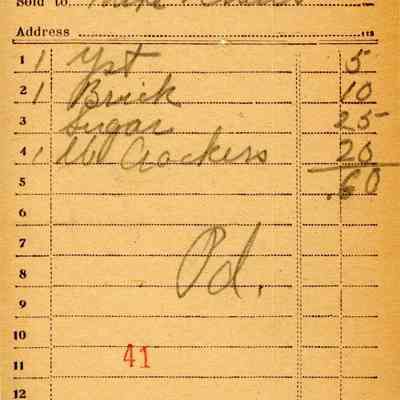 Sold to
Address
1 1 Yst 5
2 1 Brick 10
3 Sugar 25
4 1 lb Crackers 20
5 .60
6
7
8 Pd.
9
10
11 41
12